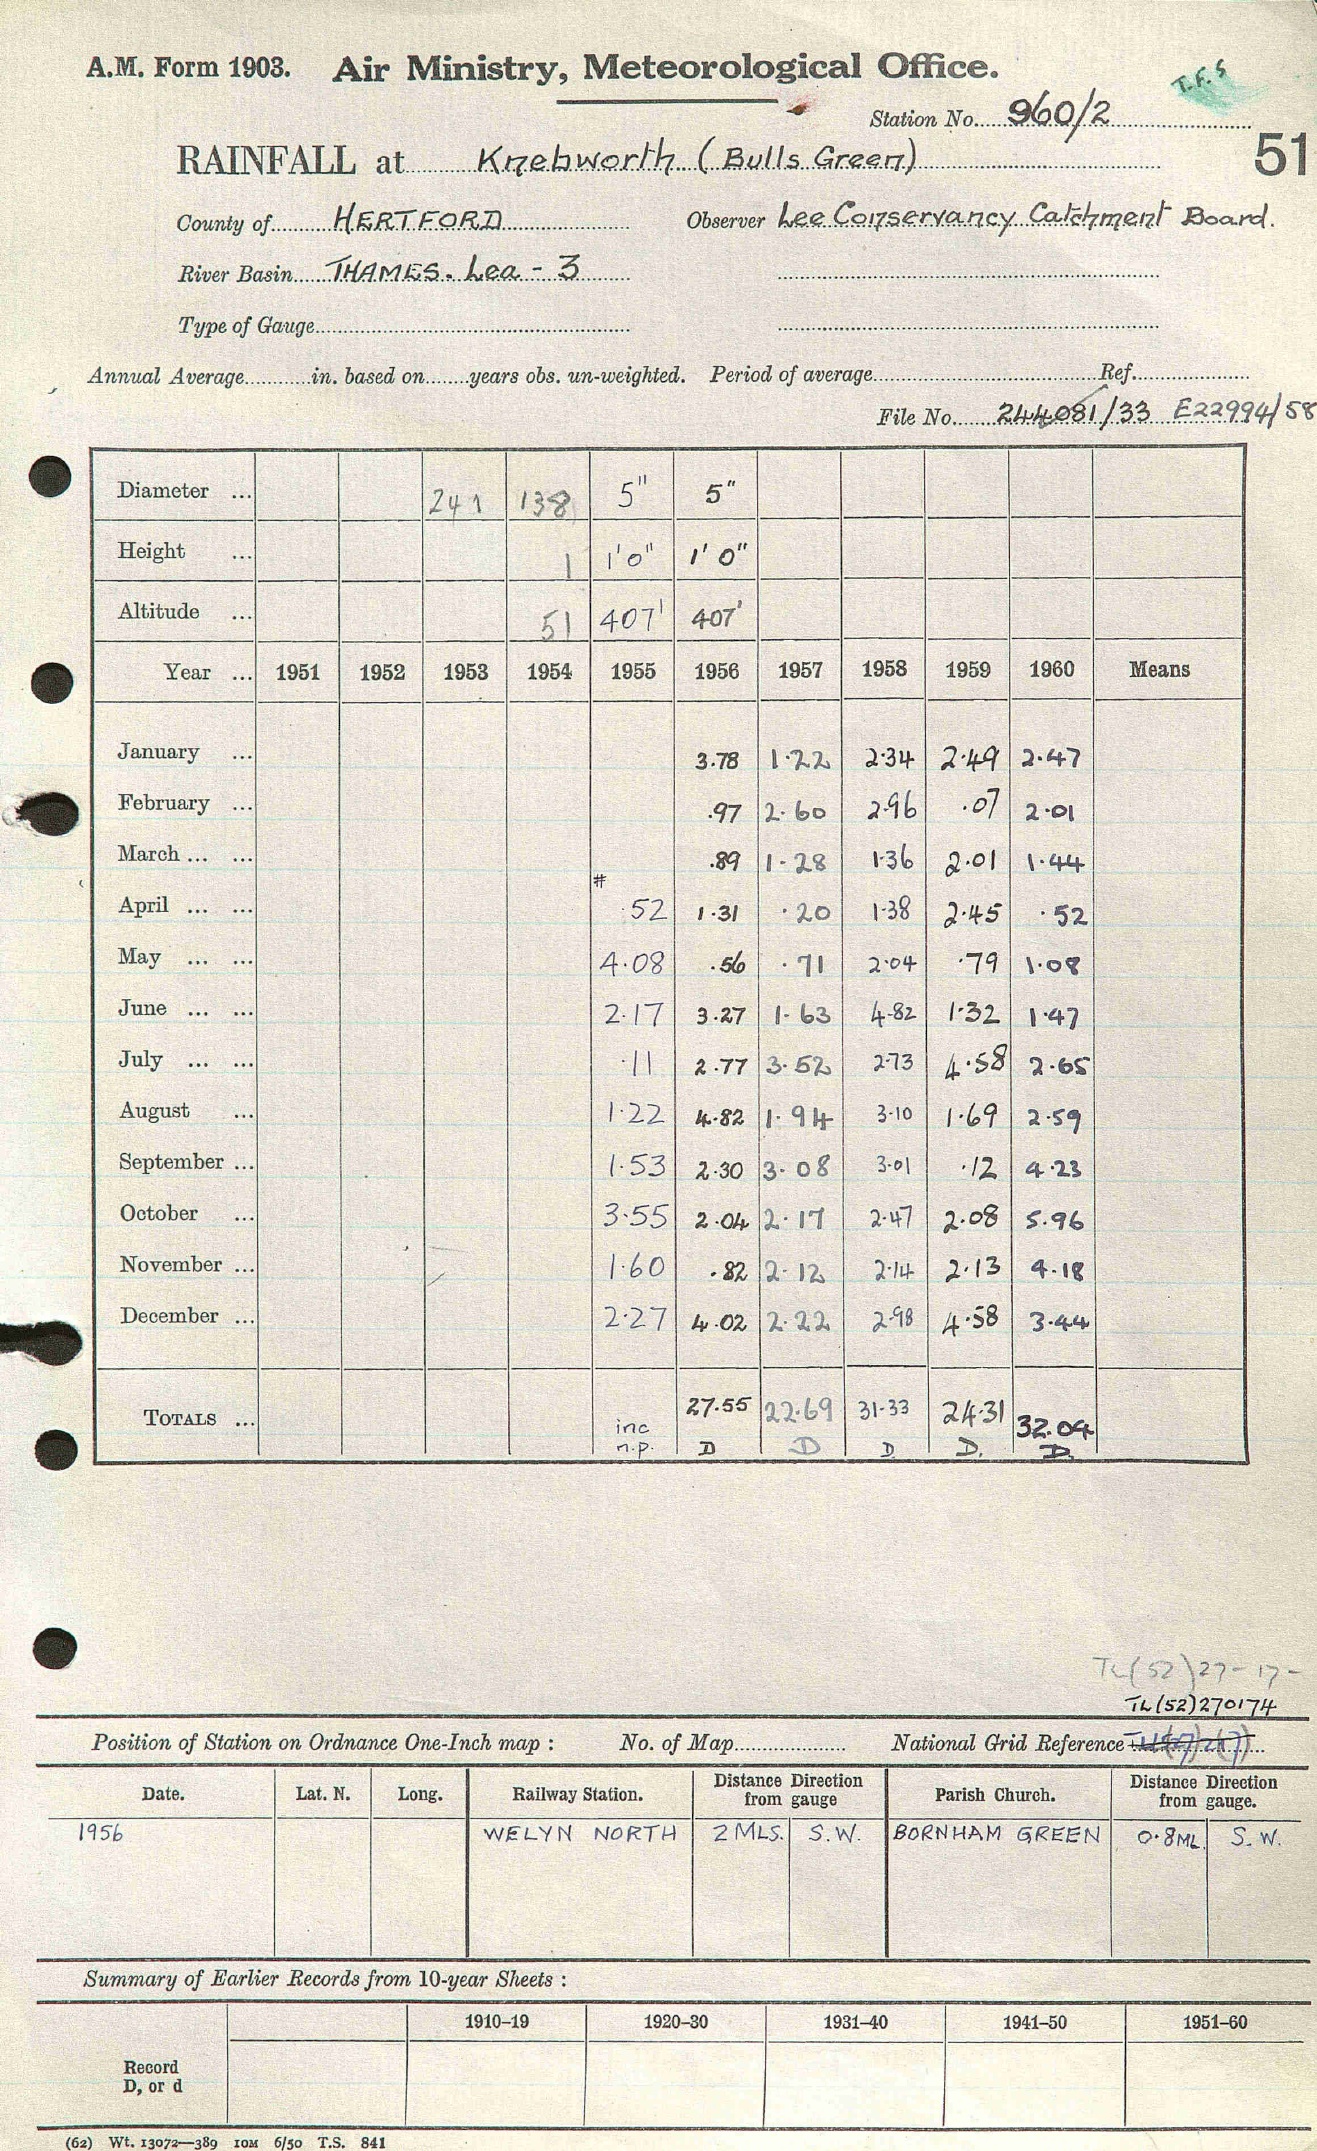 A.M. Form 1903. Air Ministry, Meteorological Office.
T.F.S
Station No. 960/2
51
RAINFALL at Knebworth (Bulls Green)
County of HERTFORD Observer Lee Conservancy Catchment Board.
River Basin THAMES. Lea - 3
Type of Gauge
Annual Average in. based on years obs. un-weighted. Period of average Ref.
File No. 244081/33 E22994/58
Diameter ... 241 138 5" 5"
Height ... 1 1'0" 1'0"
Altitude ... 51 407' 407'
Year ... 1951 1952 1953 1954 1955 1956 1957 1958 1959 1960 Means
January ... 3.78 1.22 2.34 2.49 2.47
February ... .97 2.60 2.96 .07 2.01
March ... ... .89 1.28 1.36 2.01 1.44
#
April ... ... .52 1.31 .20 1.38 2.45 .52
May ... ... 4.08 .56 .71 2.04 .79 1.08
June ... ... 2.17 3.27 1.63 4.82 1.32 1.47
July ... ... .11 2.77 3.52 2.73 4.58 2.65
August ... 1.22 4.82 1.94 3.10 1.69 2.59
September ... 1.53 2.30 3.08 3.01 .12 4.23
October ... 3.55 2.04 2.17 2.47 2.08 5.96
November ... 1.60 .82 2.12 2.14 2.13 4.18
December ... 2.27 4.02 2.22 2.98 4.58 3.44
TOTALS ... inc 27.55 22.69 31.33 24.31 32.04
n.p. D D D D. D.
TL(52)27-17-
TL(52)270174
Position of Station on Ordnance One-Inch map : No. of Map National Grid Reference
Date. Lat. N. Long. Railway Station. Distance from gauge Direction Parish Church. Distance from gauge. Direction
1956 WELYN NORTH 2 MLS. S.W. BORNHAM GREEN 0.8ML S.W.
Summary of Earlier Records from 10-year Sheets :
1910–19 1920–30 1931–40 1941–50 1951–60
Record
D, or d
(62) Wt. 13072—389 10M 6/50 T.S. 841